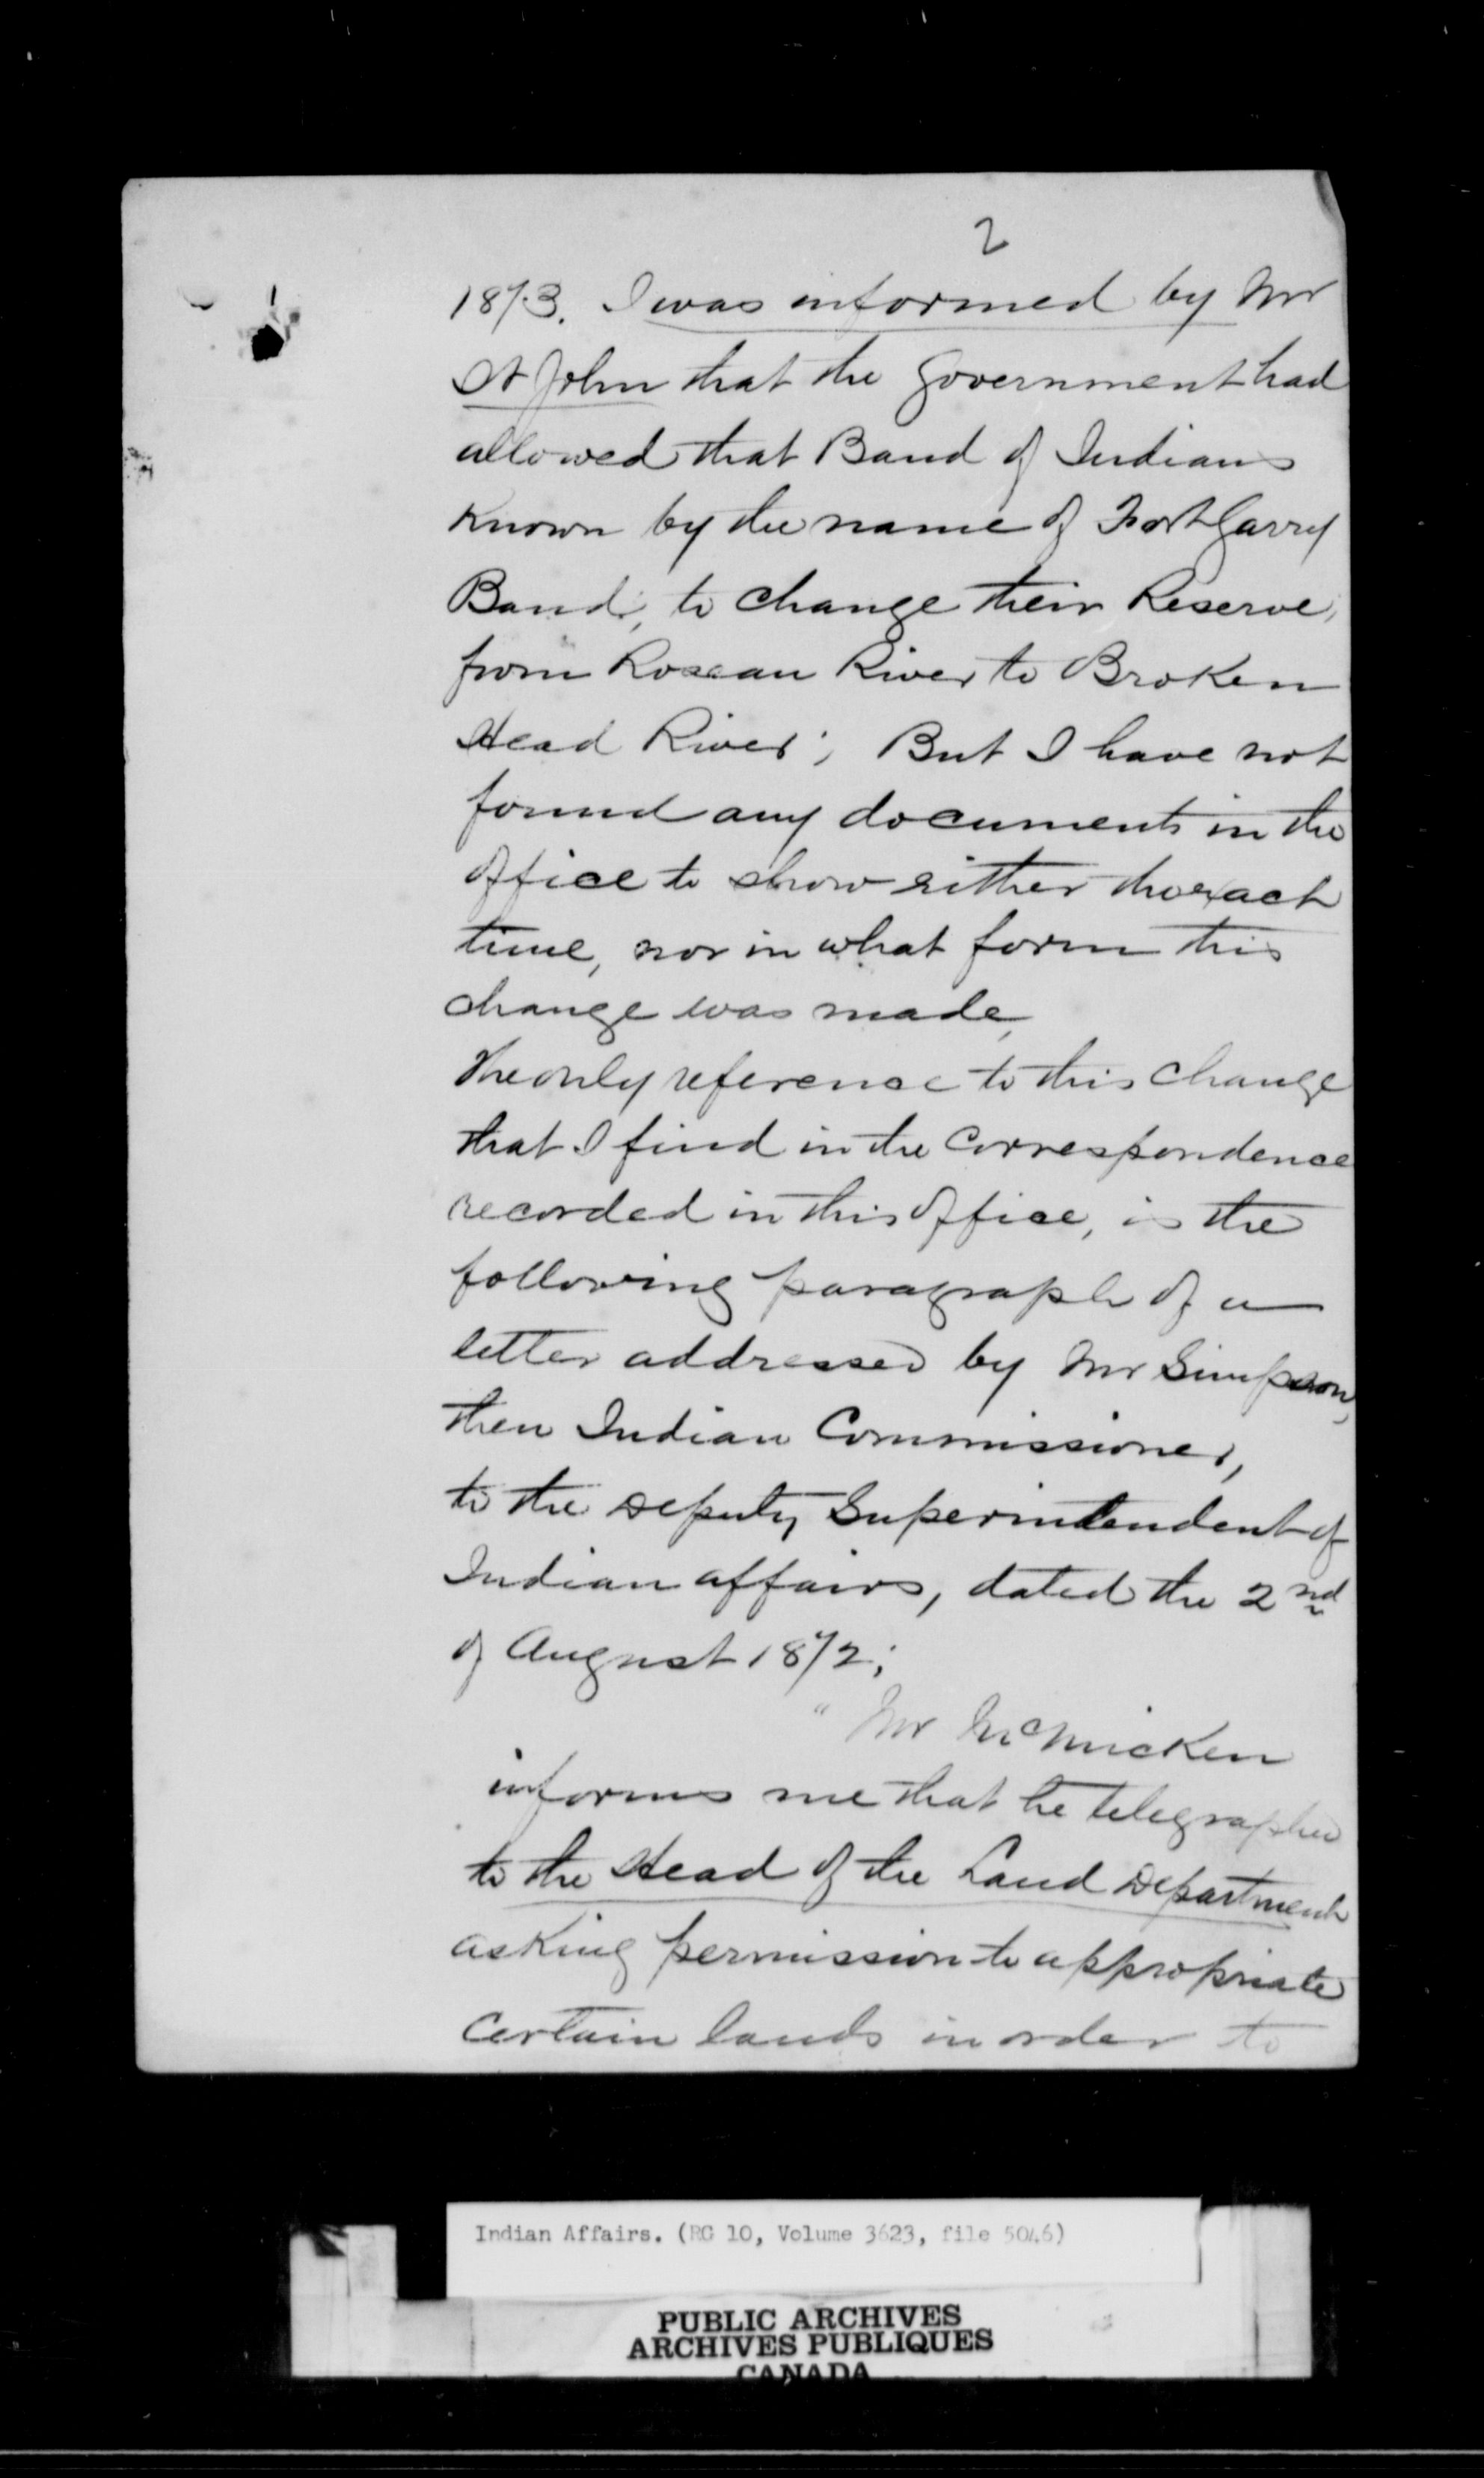 2
1873. I was informed by Mr
St John that the Government had
allowed that Band of Indians
Known by the name of Fort Garry
Band, to change their Reserve,
from Roseau River to Broken
Head River; But I have not
found any documents in the
Office to show either the exact
time, nor in what form this
change was made,
The only reference to this change
that I find in the Correspondence
recorded in this Office, is the
following paragraph of a
letter addressed by Mr Simpson,
then Indian Commissioner,
to the Deputy Superintendent of
Indian affairs, dated the 2nd
of August 1872;
" Mr McMicken
informs me that he telegraphed
to the Head of the Land Department
asking permission to appropriate
Certain lands in order to
Indian Affairs. (RG 10, Volume 3623, file 5046)
PUBLIC ARCHIVES
ARCHIVES PUBLIQUES
CANADA